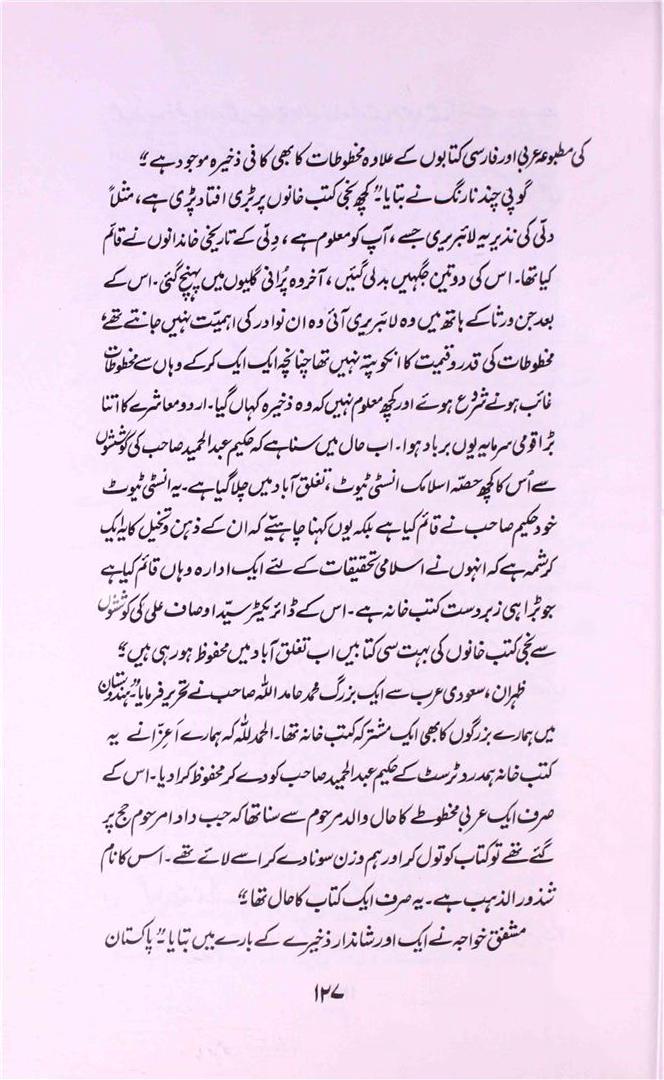 کی مطبوعہ عربی اور فارسی کتابوں کے علاوہ مخطوطات کا بھی کافی ذخیرہ موجود ہے ؛؛
گوپی چند نارنگ نے بتایا۔" کچھ نجی کتب خانوں پر بڑی افتاد پڑی ہے ، مثلاً
دلّی کی نذیریہ لائبریری جسے ، آپ کو معلوم ہے ، دِلّی کے تاریخی خاندانوں نے قائم
کیا تھا۔ اس کی دو تین جگہیں بدلی گئیں ، آخر وہ پُرانی گلیوں میں پہنچ گئی۔ اس کے
بعد جن ورثا کے ہاتھ میں وہ لائبریری آئی وہ ان نوادر کی اہمیّت نہیں جانتے تھے،
مخطوطات کی قدر و قیمت کا انکو پتہ نہیں تھا چنانچہ ایک ایک کرکے وہاں سے مخطوطات
غائب ہونے شروع ہوئے اور کچھ معلوم نہیں کہ وہ ذخیرہ کہاں گیا۔ اردو معاشرے کا اتنا
بڑا قومی سرمایہ یوں برباد ہوا۔ اب حال میں سنا ہے کہ حکیم عبدالحمید صاحب کی کوششوں
سے اُس کا کچھ حصّہ اسلامک انسٹی ٹیوٹ ، تغلق آباد میں چلا گیا ہے۔ یہ انسٹی ٹیوٹ
خود حکیم صاحب نے قائم کیا ہے بلکہ یوں کہنا چاہیئے کہ ان کے ذہن و تخیل کا یہ ایک
کرشمہ ہے کہ انہوں نے اسلامی تحقیقات کے لئے ایک ادارہ وہاں قائم کیا ہے
جو بڑا ہی زبردست کتب خانہ ہے۔ اس کے ڈائریکٹر سیّد اوصاف علی کی کوششوں
سے نجی کتب خانوں کی بہت سی کتابیں اب تغلق آباد میں محفوظ ہو رہی ہیں ؛؛
ظہران ، سعودی عرب سے ایک بزرگ محمد حامد اللہ صاحب نے تحریر فرمایا۔" ہندوستان
میں ہمارے بزرگوں کا بھی ایک مشترکہ کتب خانہ تھا۔ الحمد للہ کہ ہمارے اَعِزّا نے یہ
کتب خانہ ہمدرد ٹرسٹ کے حکیم عبدالحمید صاحب کو دے کر محفوظ کرا دیا۔ اس کے
صرف ایک عربی مخطوطے کا حال والد مرحوم سے سنا تھا کہ جب دادا مرحوم حج پر
گئے تھے تو کتاب کو تول کر اور ہم وزن سونا دے کر اسے لائے تھے۔ اس کا نام
شذور الذہب ہے۔ یہ صرف ایک کتاب کا حال تھا ؛؛
مشفق خواجہ نے ایک اور شاندار ذخیرے کے بارے میں بتایا۔" پاکستان
۱۲۷